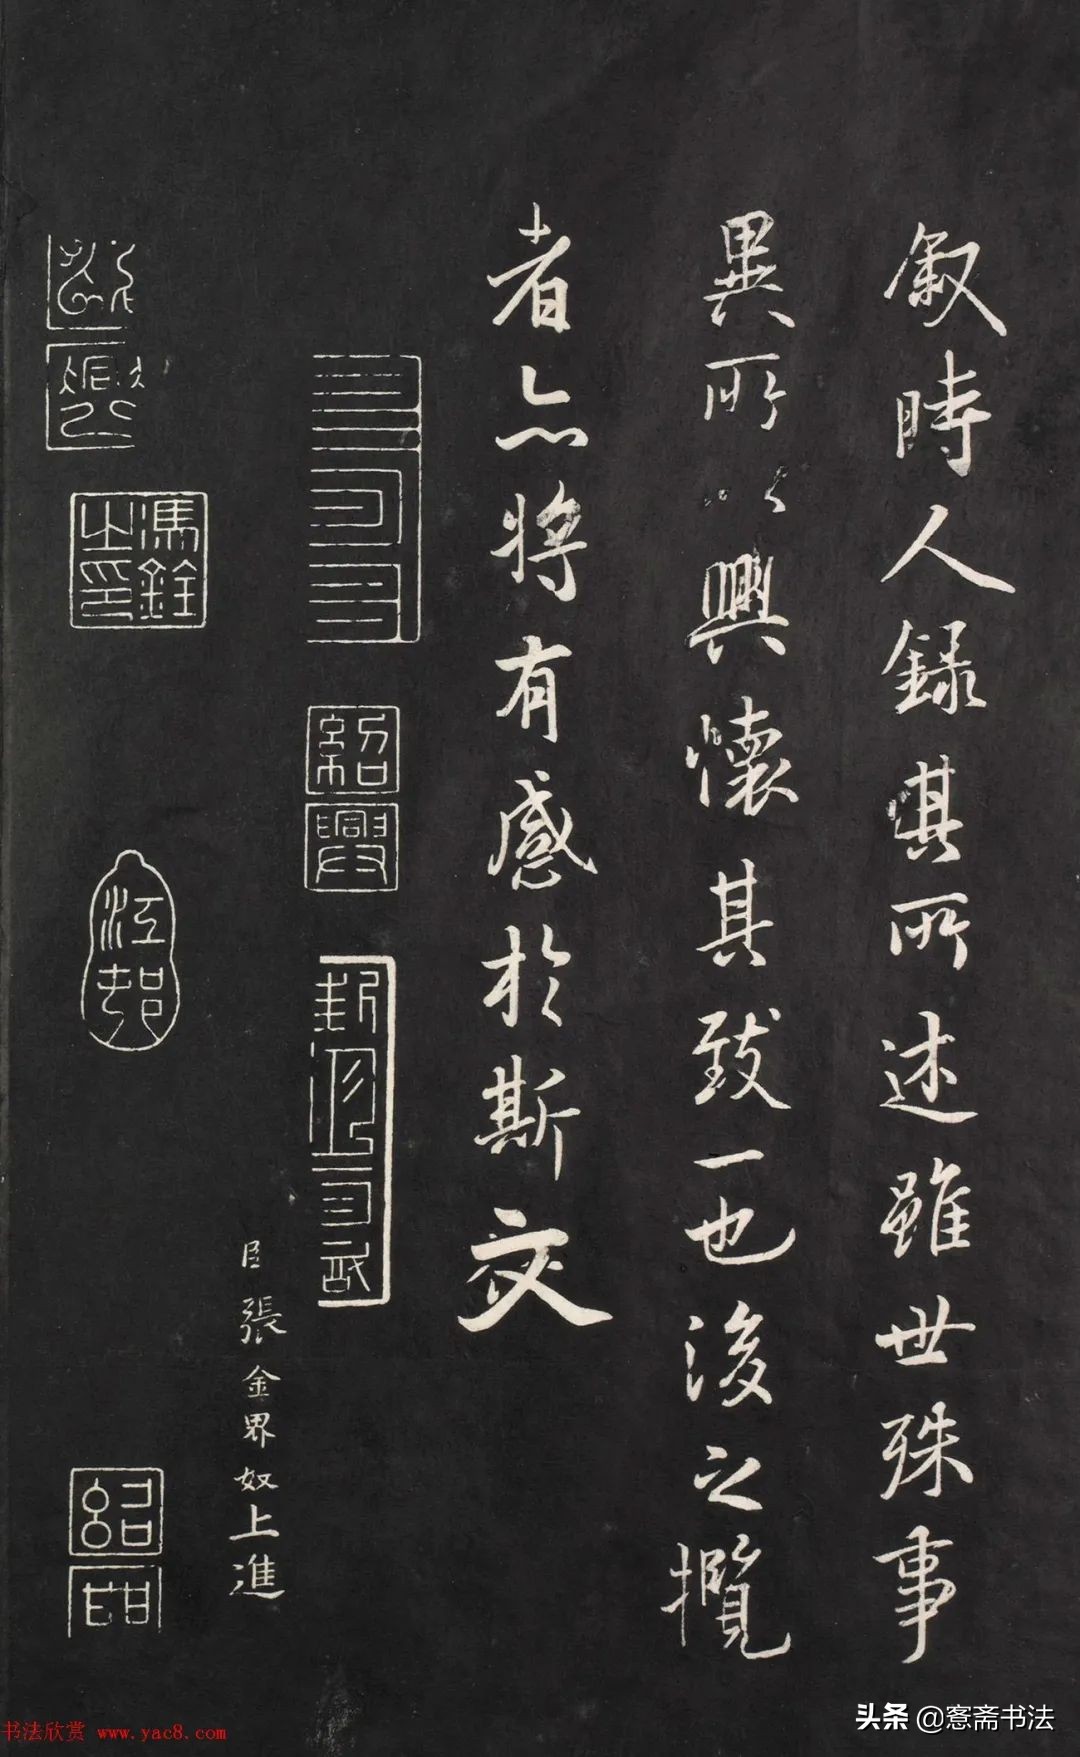 敘時人錄其所述雖世殊事
異所以興懷其致一也後之攬
者亦將有感於斯文
臣張金界奴上進
紹興
馮銓之印
江邨
书法欣赏 www.yac8.com
头条 @窓斋书法